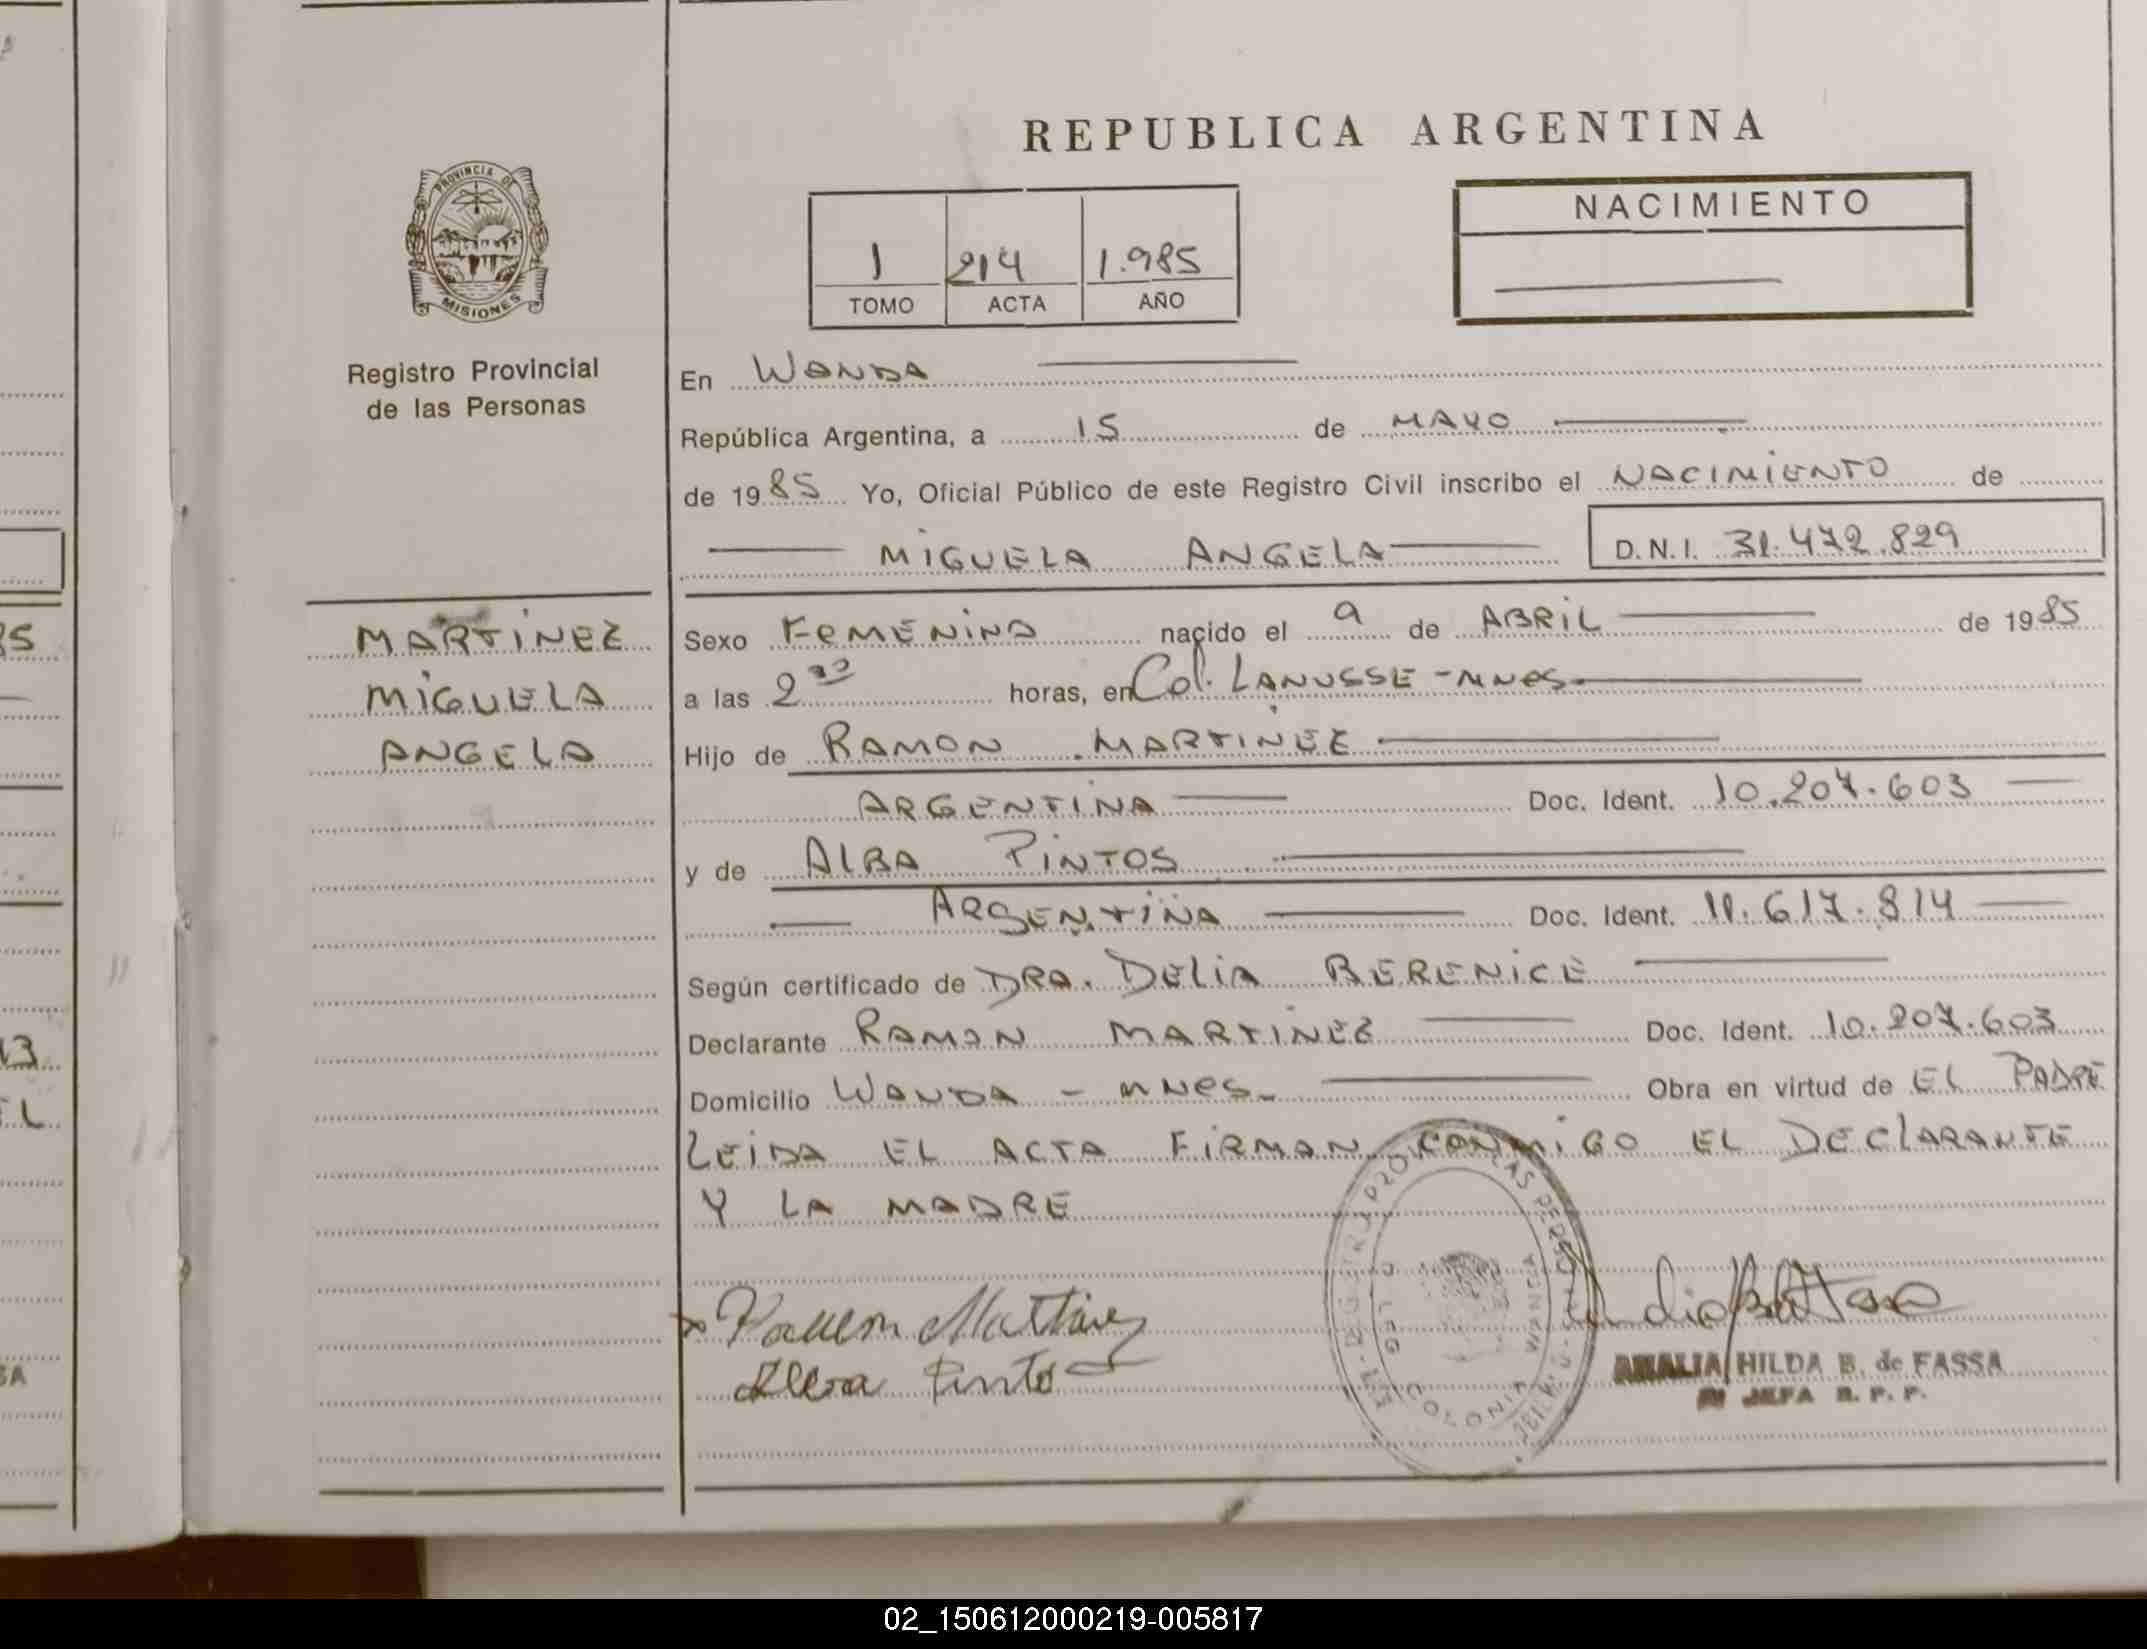 REPUBLICA ARGENTINA
PROVINCIA DE
MISIONES
Registro Provincial
de las Personas
1 214 1.985
TOMO ACTA AÑO
NACIMIENTO
En WANDA
República Argentina, a 15 de MAYO
de 1985 Yo, Oficial Público de este Registro Civil inscribo el NACIMIENTO de
MIGUELA ANGELA D.N.I. 31.472.829
MARTINEZ
MIGUELA
ANGELA
Sexo FEMENINA nacido el 9 de ABRIL de 1985
a las 2 horas, en Col. LANUSSE - MNES.
Hijo de RAMON MARTINEZ
ARGENTINA Doc. Ident. 10.207.603
y de ALBA PINTOS
ARGENTINA Doc. Ident. 11.617.814
Según certificado de DRA. DELIA BERENICE
Declarante RAMON MARTINEZ Doc. Ident. 10.207.603
Domicilio WANDA - MNES. Obra en virtud de EL PADRE
LEIDA EL ACTA FIRMAN CONMIGO EL DECLARANTE
Y LA MADRE
Ramon Martinez
Pintos
COLONIA WANDA
AMALIA HILDA B. de FASSA
JEFA R. P. P.
02_150612000219-005817